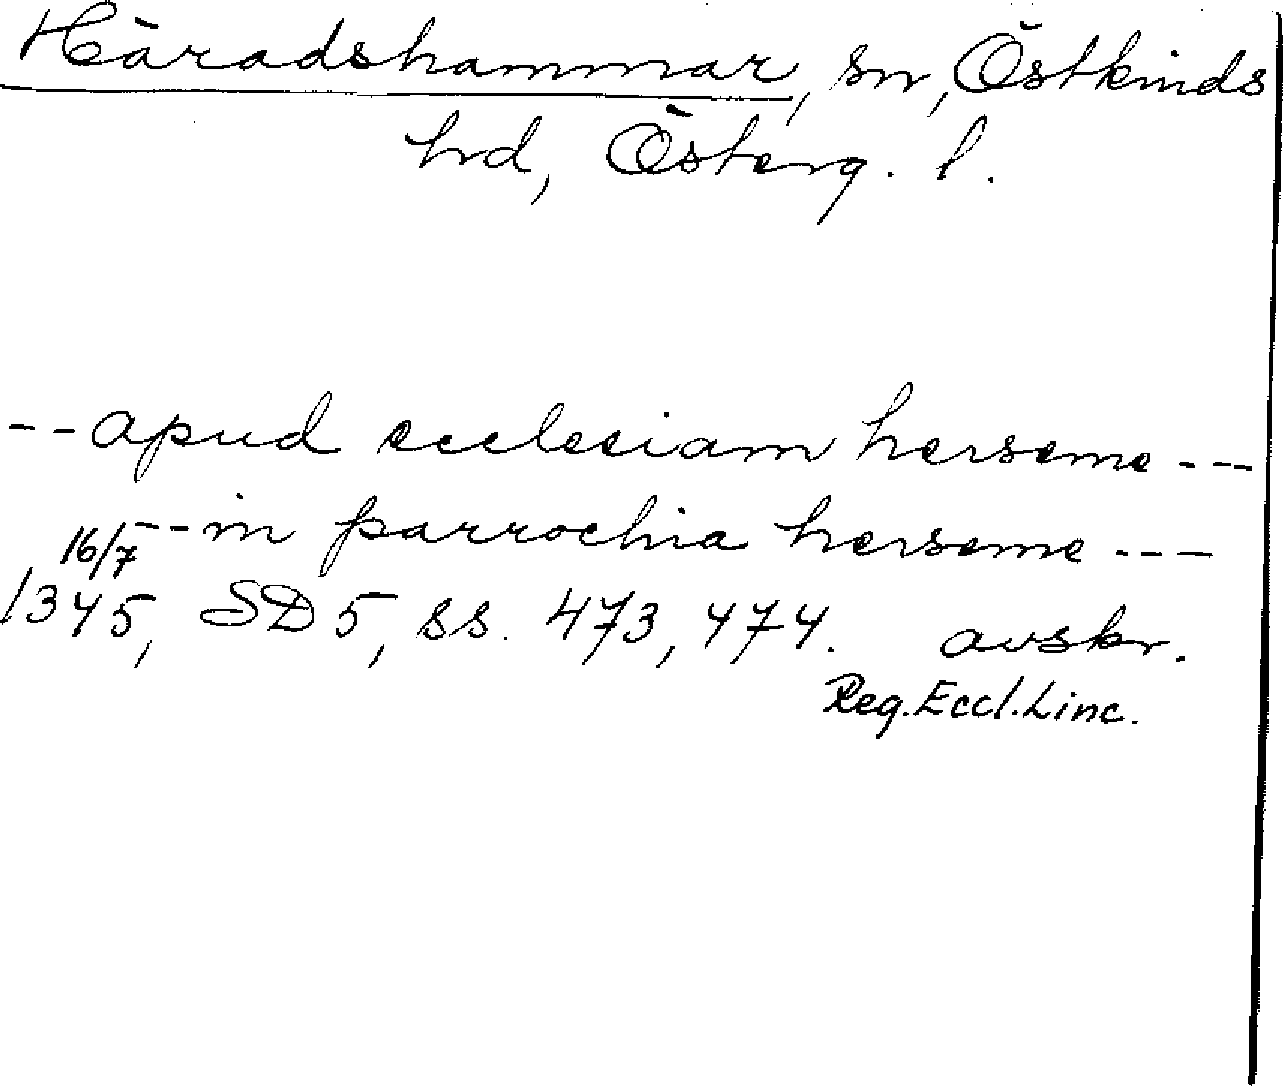 Häradshammar, sn, Östkinds
hrd, Österg. l.
--apud ecclesiam herseme---
--in parrochia herseme---
16/7
1345, SD 5, ss. 473, 474. avskr.
Reg. Eccl. Linc.